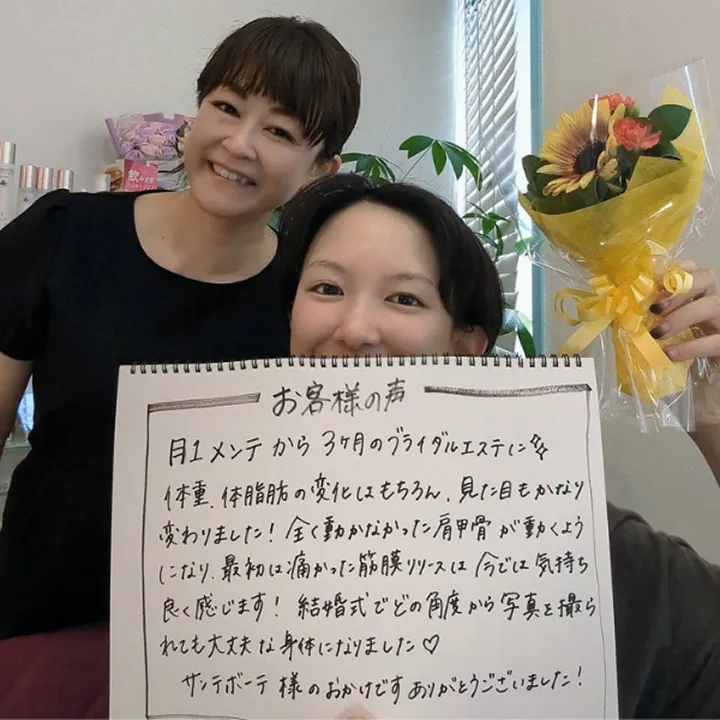 飲み
お客様の声
月1メンテから3ヶ月のブライダルエステに
体重、体脂肪の変化はもちろん、見た目もかなり
変わりました!全く動かなかった肩甲骨が動くよう
になり、最初は痛かった筋膜リリースは今では気持ち
良く感じます!結婚式でどの角度から写真を撮ら
れても大丈夫な身体になりました♡
サンテボーテ様のおかけです ありがとうございました!